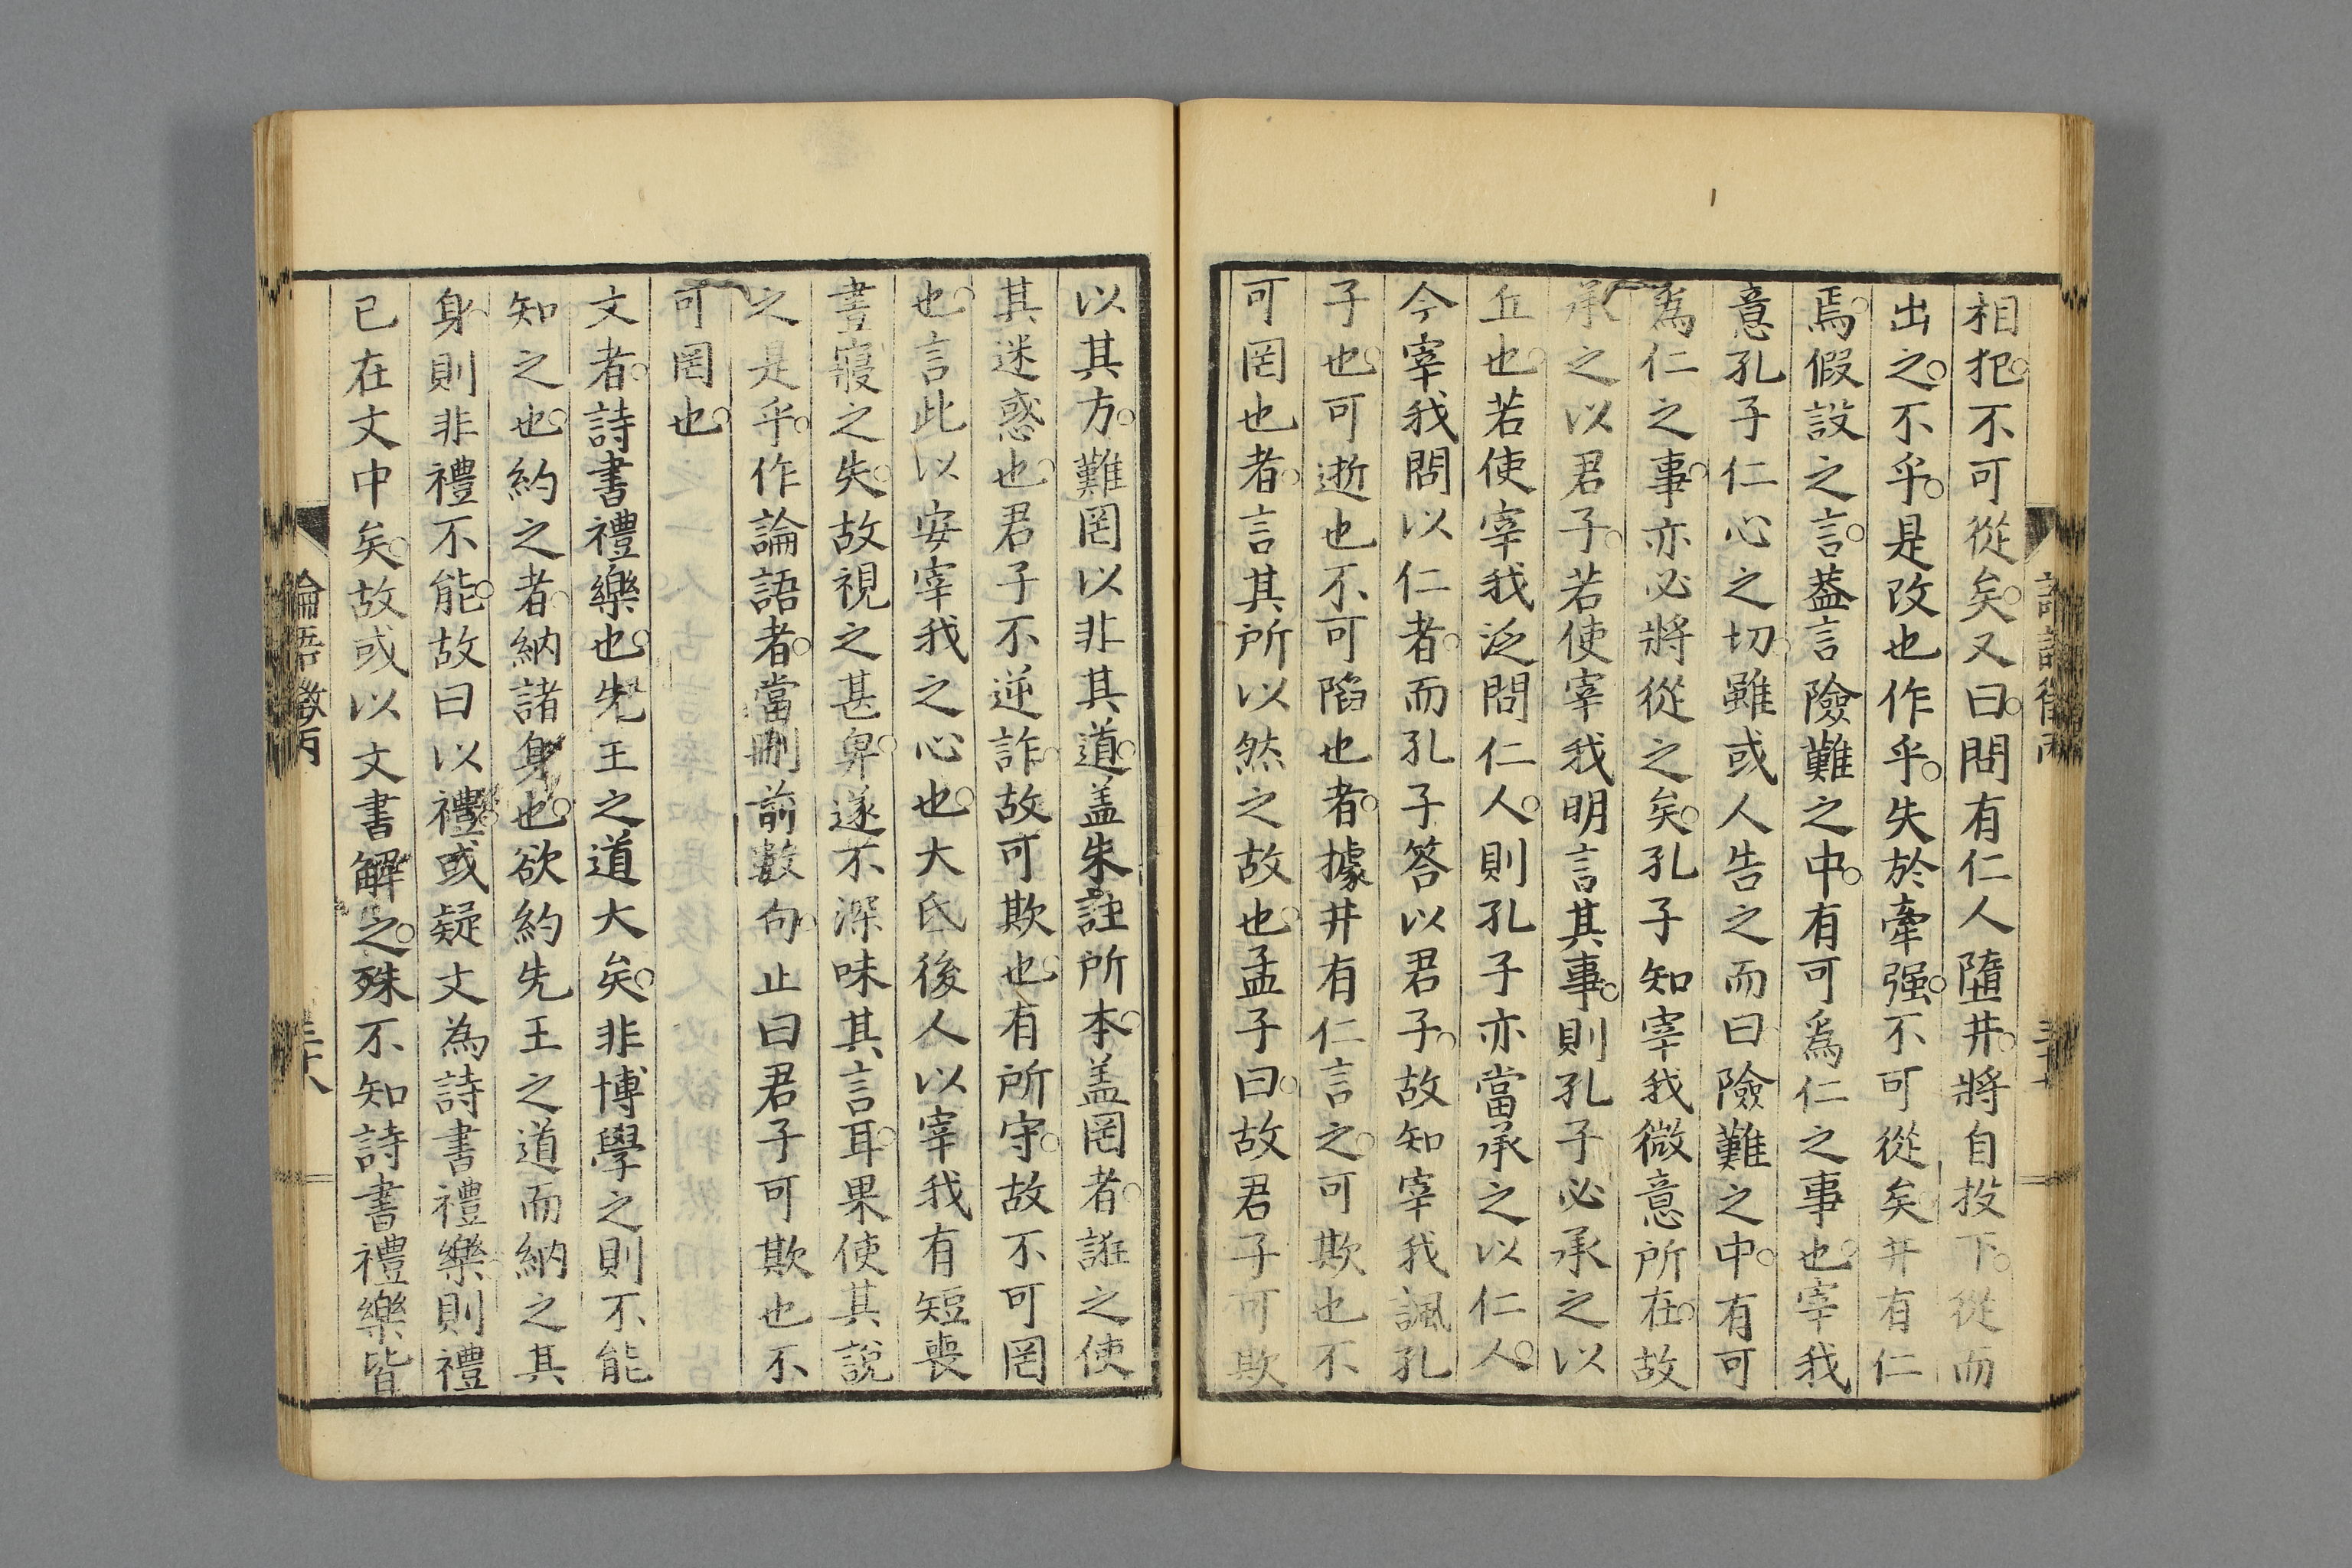 相犯不可從矣又曰問有仁人墮井將自投下從而
出之不乎是改也作乎失於牽强不可從矣井有仁
焉假設之言葢言險難之中有可爲仁之事也宰我
意孔子仁心之切雖或人告之而曰險難之中有可
爲仁之事亦必將從之矣孔子知宰我微意所在故
承之以君子若使宰我明言其事則孔子必承之以
丘也若使宰我泛問仁人則孔子亦當承之以仁人
今宰我問以仁者而孔子答以君子故知宰我諷孔
子也可逝也不可陷也者據井有仁言之可欺也不
可罔也者言其所以然之故也孟子曰故君子可欺
以其方難罔以非其道盖朱註所本盖罔者誑之使
其迷惑也君子不逆詐故可欺也有所守故不可罔
也言此以安宰我之心也大氐後人以宰我有短喪
晝寢之失故視之甚卑遂不深味其言耳果使其說
之是乎作論語者當刪前數句止曰君子可欺也不
可罔也
文者詩書禮樂也先王之道大矣非博學之則不能
知之也約之者納諸身也欲約先王之道而納之其
身則非禮不能故曰以禮或疑文為詩書禮樂則禮
已在文中矣故或以文書解之殊不知詩書禮樂皆
論語徵丙
三十八